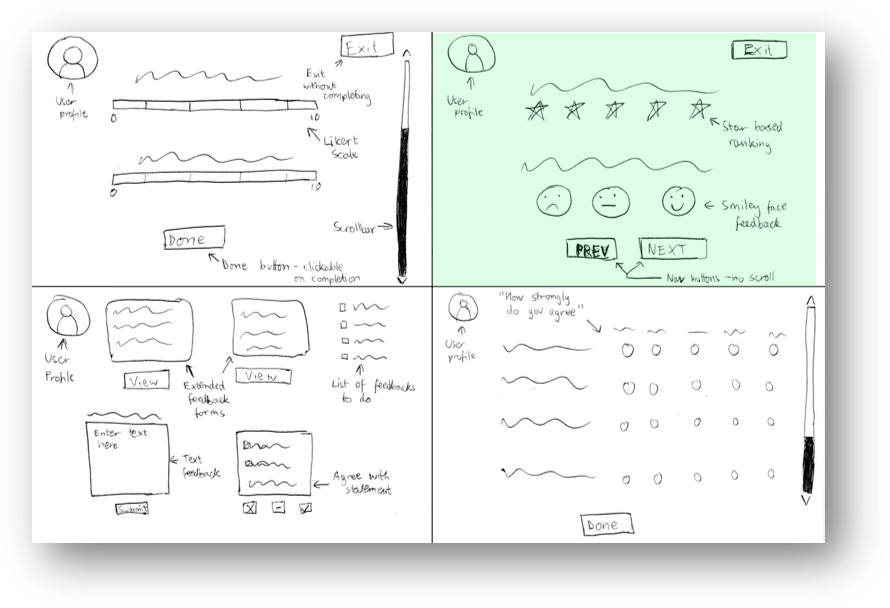 Exit
User
profile
Exit
without
completing
0
10
Likert
Scale
0
10
Done
Scrollbar
Done button - clickable
on completion
Exit
User
profile
Star based
ranking
Smiley face
feedback
PREV
NEXT
Nav buttons - no scroll
User
Profile
View
View
Extended
feedback
forms
List of feedbacks
to do
Enter text
here
Text
feedback
Submit
Agree with
statement
"How strongly
do you agree"
User
profile
Done